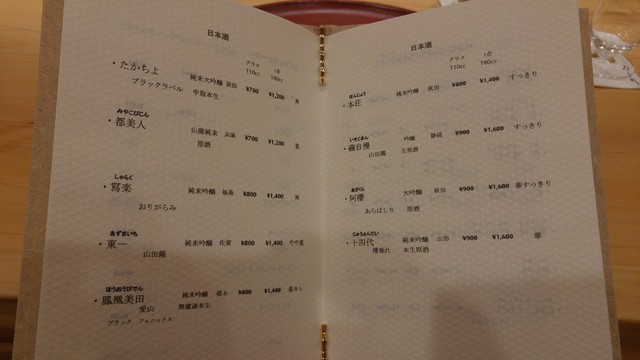 日本酒
グラス 1合
110cc 180cc
・たかちよ 純米大吟醸 新潟 ¥700 ¥1,200
ブラックラベル 中取本生
みやこびじん
・都美人 山廃純米 兵庫 ¥700 ¥1,200
原酒
しゃらく
・寫楽 純米吟醸 福島 ¥800 ¥1,400
おりがらみ
あずまいち
・東一 純米吟醸 佐賀 ¥800 ¥1,400
山田錦
ほうおうびでん
・鳳凰美田 純米吟醸 栃木 ¥800 ¥1,400
愛山 無濾過本生
ブラック フェニックス
日本酒
グラス 1合
110cc 180cc
ほんじょう
・本荘 純米吟醸 秋田 ¥800 ¥1,400 すっきり
いそじまん
・磯自慢 吟醸 静岡 ¥900 ¥1,600 すっきり
山田錦 生原酒
あざくら
・阿櫻 大吟醸 秋田 ¥900 ¥1,600 華すっきり
あらばしり 原酒
じゅうよんだい
・十四代 純米吟醸 山形 ¥900 ¥1,600 華
槽垂れ 本生原酒